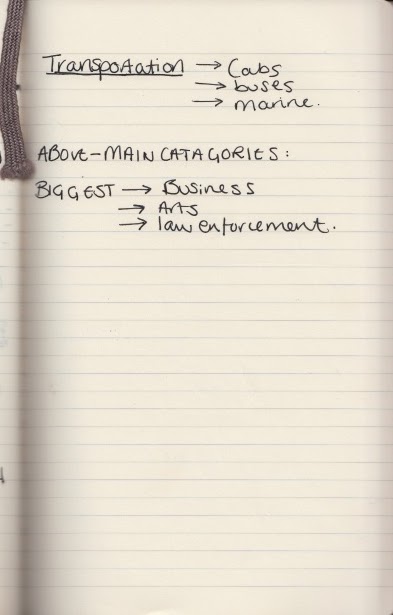 Transportation → Cabs
→ buses
→ marine.
ABOVE-MAIN CATAGORIES:
BIGGEST → Business
→ Arts
→ law enforcement.